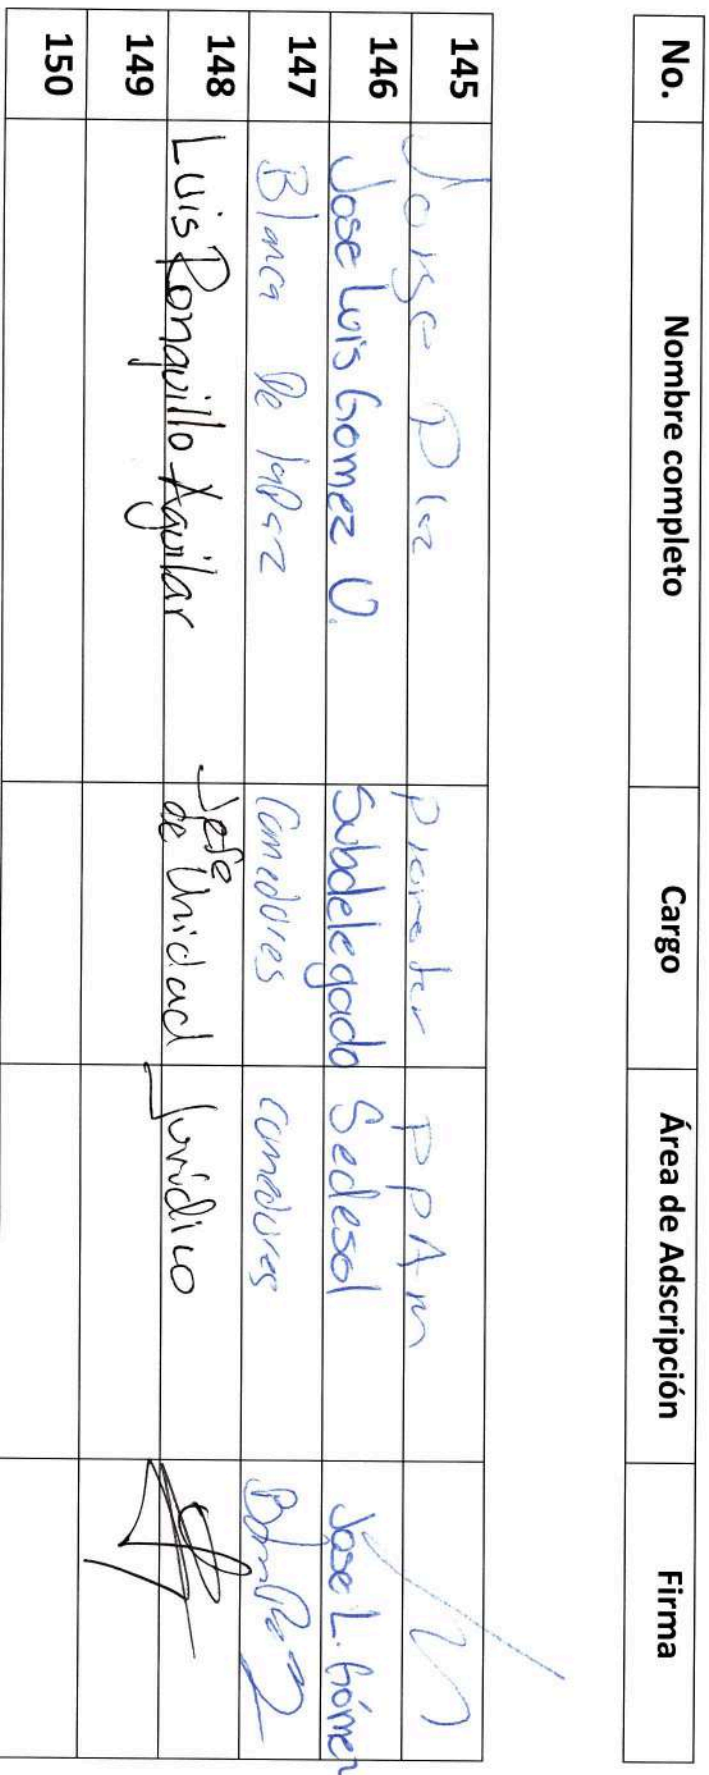 No. Nombre completo Cargo Área de Adscripción Firma
145 Jorge PPAM
146 Jose Luis Gomez U. Subdelegado Sedesol Jose L. Gómez
147 Blanca De la Paz Comedores comedores
148 Luis Ronquillo Aguilar Jefe de Unidad Jurídico
149
150